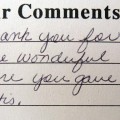 ur Comments
hank you for
e wonderful
re you gave
tis.